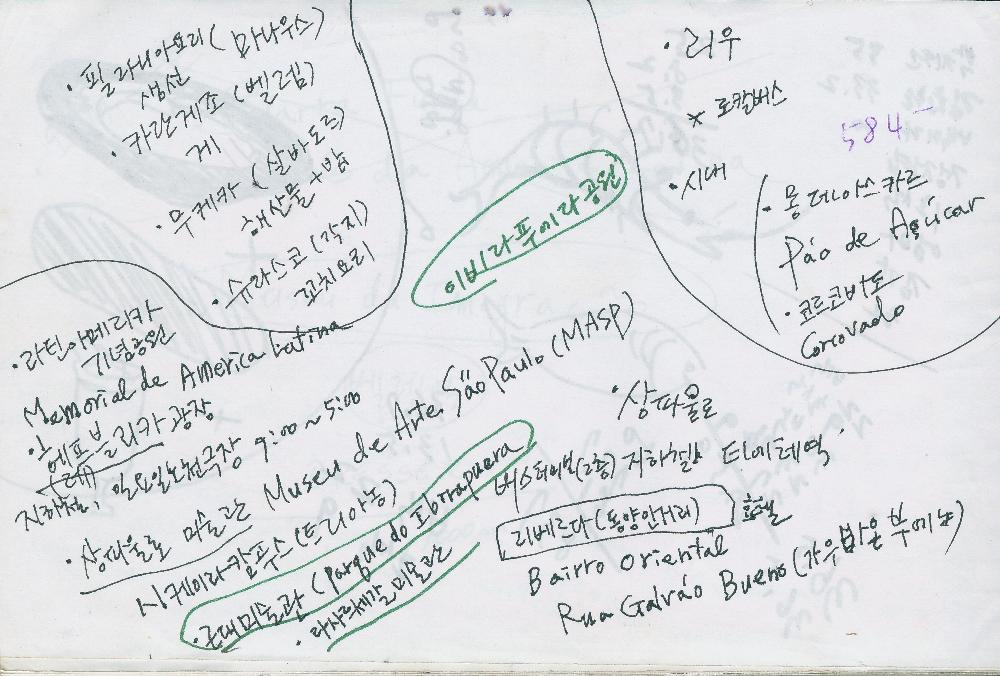 · 필라니아요리 (마나우스)
생선
· 카란게죠 (벨렘)
게
· 무케카 (살바도르)
해산물 + 밥
· 슈라스코 (각지)
꼬치요리
이비라푸에라공원
· 리우
* 로칼버스
584
· 시내
· 퐁데아스카르
Páo de Açúcar
· 코르코바도
Corcovado
· 라틴아메리카
기념공원
Memorial de America Latina
헤프블리카 광장
지하철, 일요일노천극장 9:00 ~ 5:00
· 상파울로 미술관 Museu de Arte São Paulo (MASP)
시케이라캄푸스 (트리아농)
· 근대미술관 (Parque do Ibrapuera
· 상파울로
지하철 티에테역
리베르다 (동양인거리) 호텔
Bairro Oriental
Rua Galváo Bueno